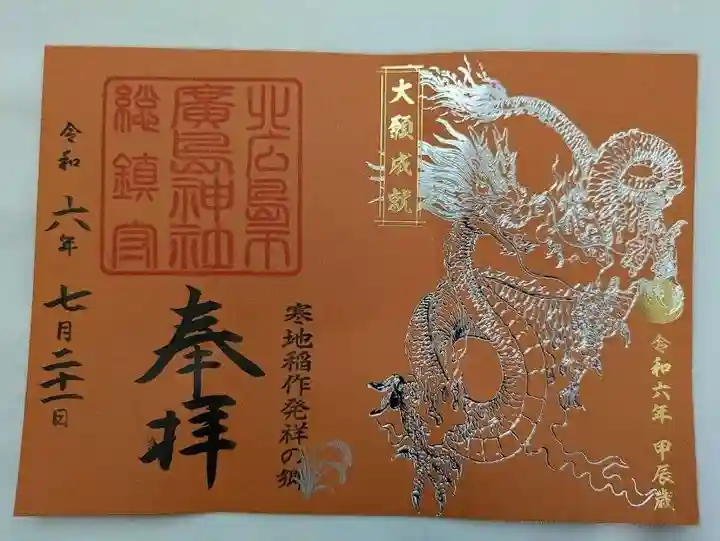 大願成就
令和六年 甲辰歳
北広島市
廣島神社
総鎮守
寒地稲作発祥の郷
奉拝
令和六年七月二十一日